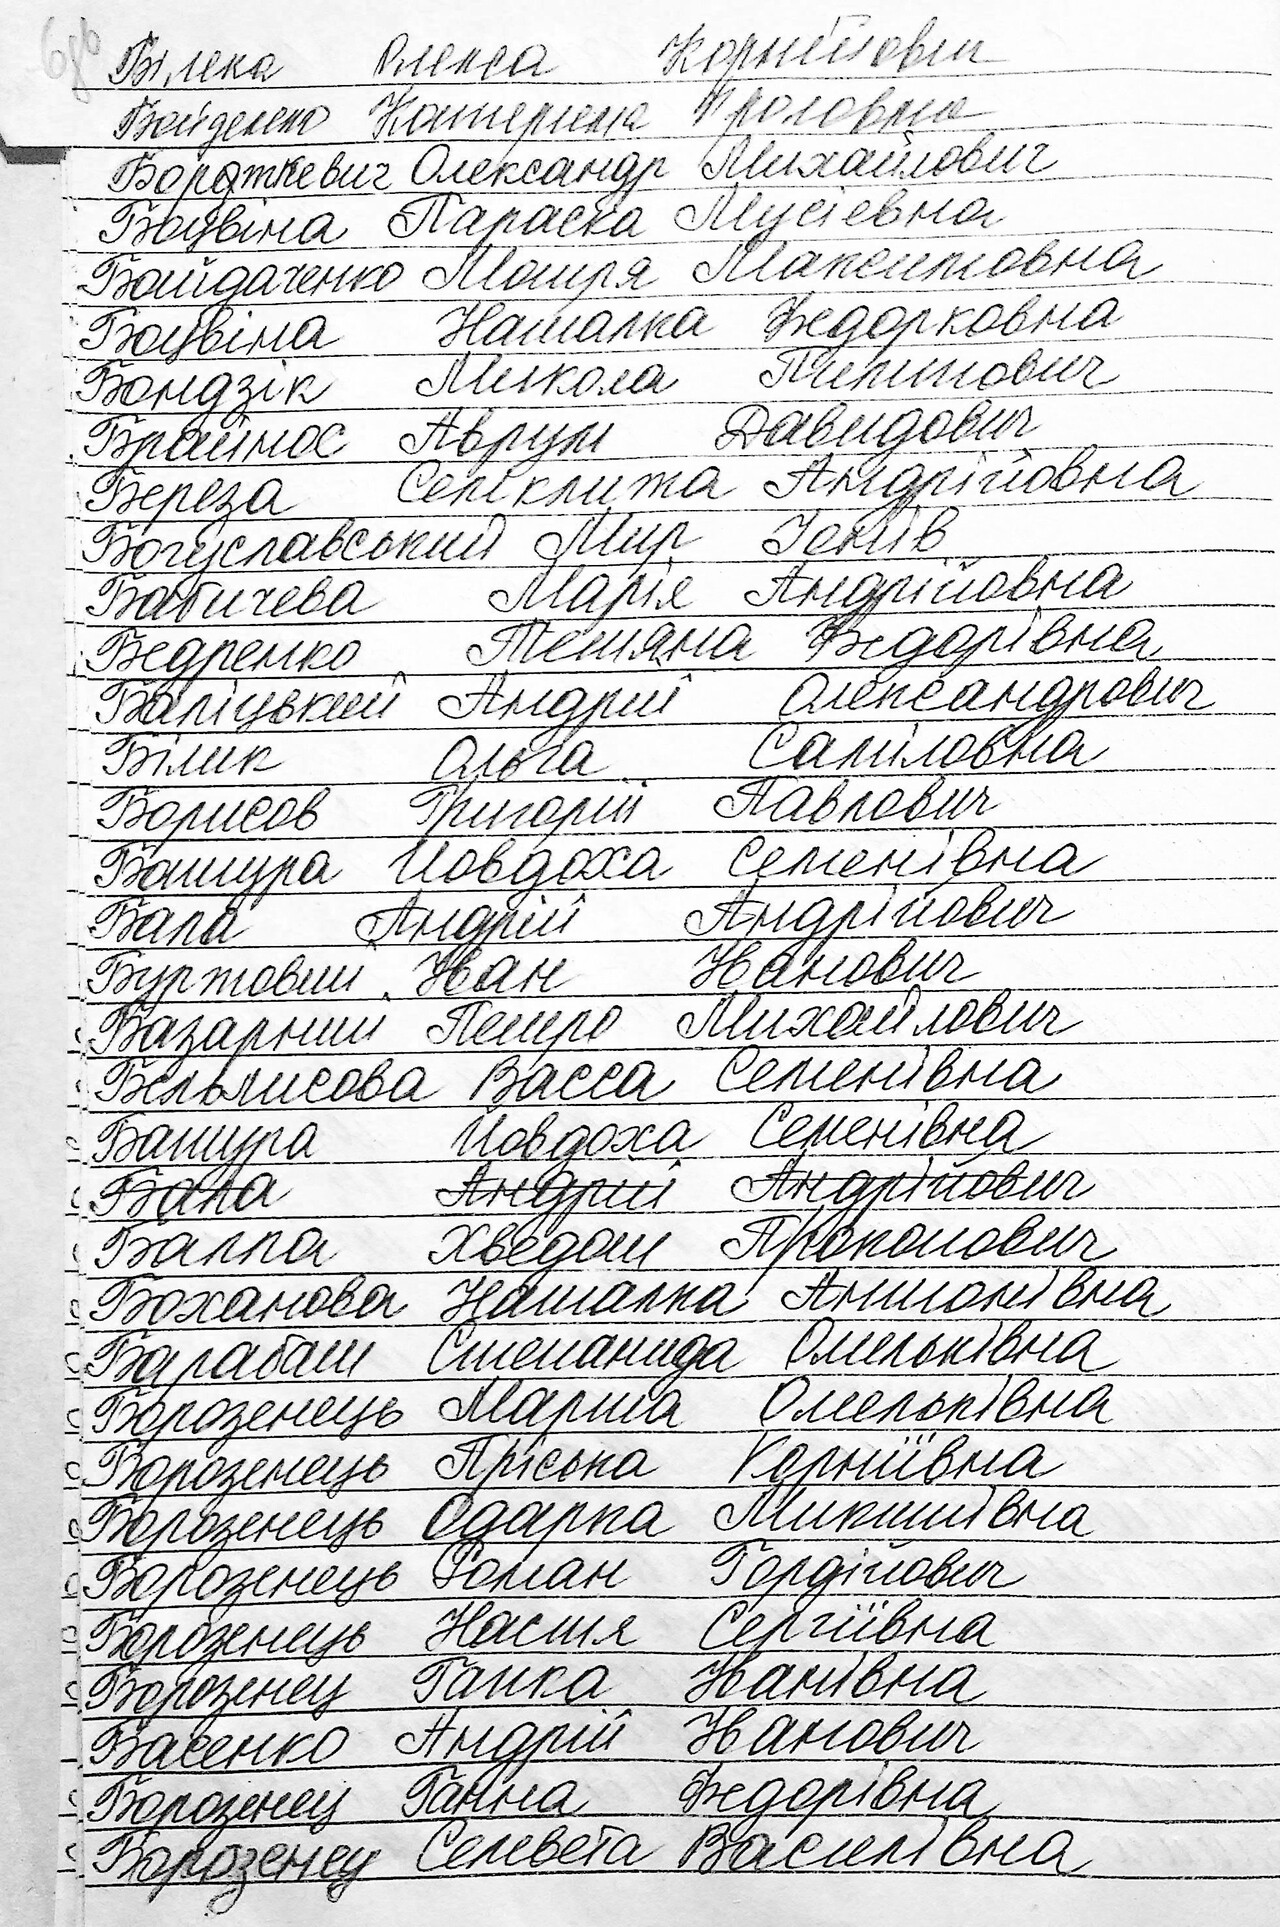 68б
Білека Олекса Корнійович
Байделено Катерина Фроловна
Бороткевич Олександр Михайлович
Боцвіна Параска Мусіевна
Байдаченко Мотря Максимовна
Боцвіна Наталка Федорковна
Бондзік Микола Пилипович
Браймос Аврум Давидович
Береза Секлита Андрійовна
Богуславський Мир Іонів
Бабичева Марія Андрійовна
Бедренко Тетяна Федорівна
Баліцький Андрій Олександрович
Білик Ольга Саміловна
Борисов Григорій Павлович
Башура Йовдоха Семенівна
Бала Андрій Андрійович
Буртовий Іван Іванович
Базарний Петро Михайлович
Бельмисова Васса Семенівна
Башура Йовдоха Семенівна
Бала Андрій Андрійович
Балла Хведот Прокопович
Боханова Наталка Антонівна
Барабаш Степанида Омельківна
Борозенець Марина Омельківна
Борозенець Пріська Корніївна
Борозенець Одарка Микитівна
Борозенець Роман Гордійович
Борозенець Настя Сергіївна
Борозенец Ганка Іванівна
Васенко Андрій Іванович
Борозенец Ганна Федорівна
Борозенец Селевета Василівна